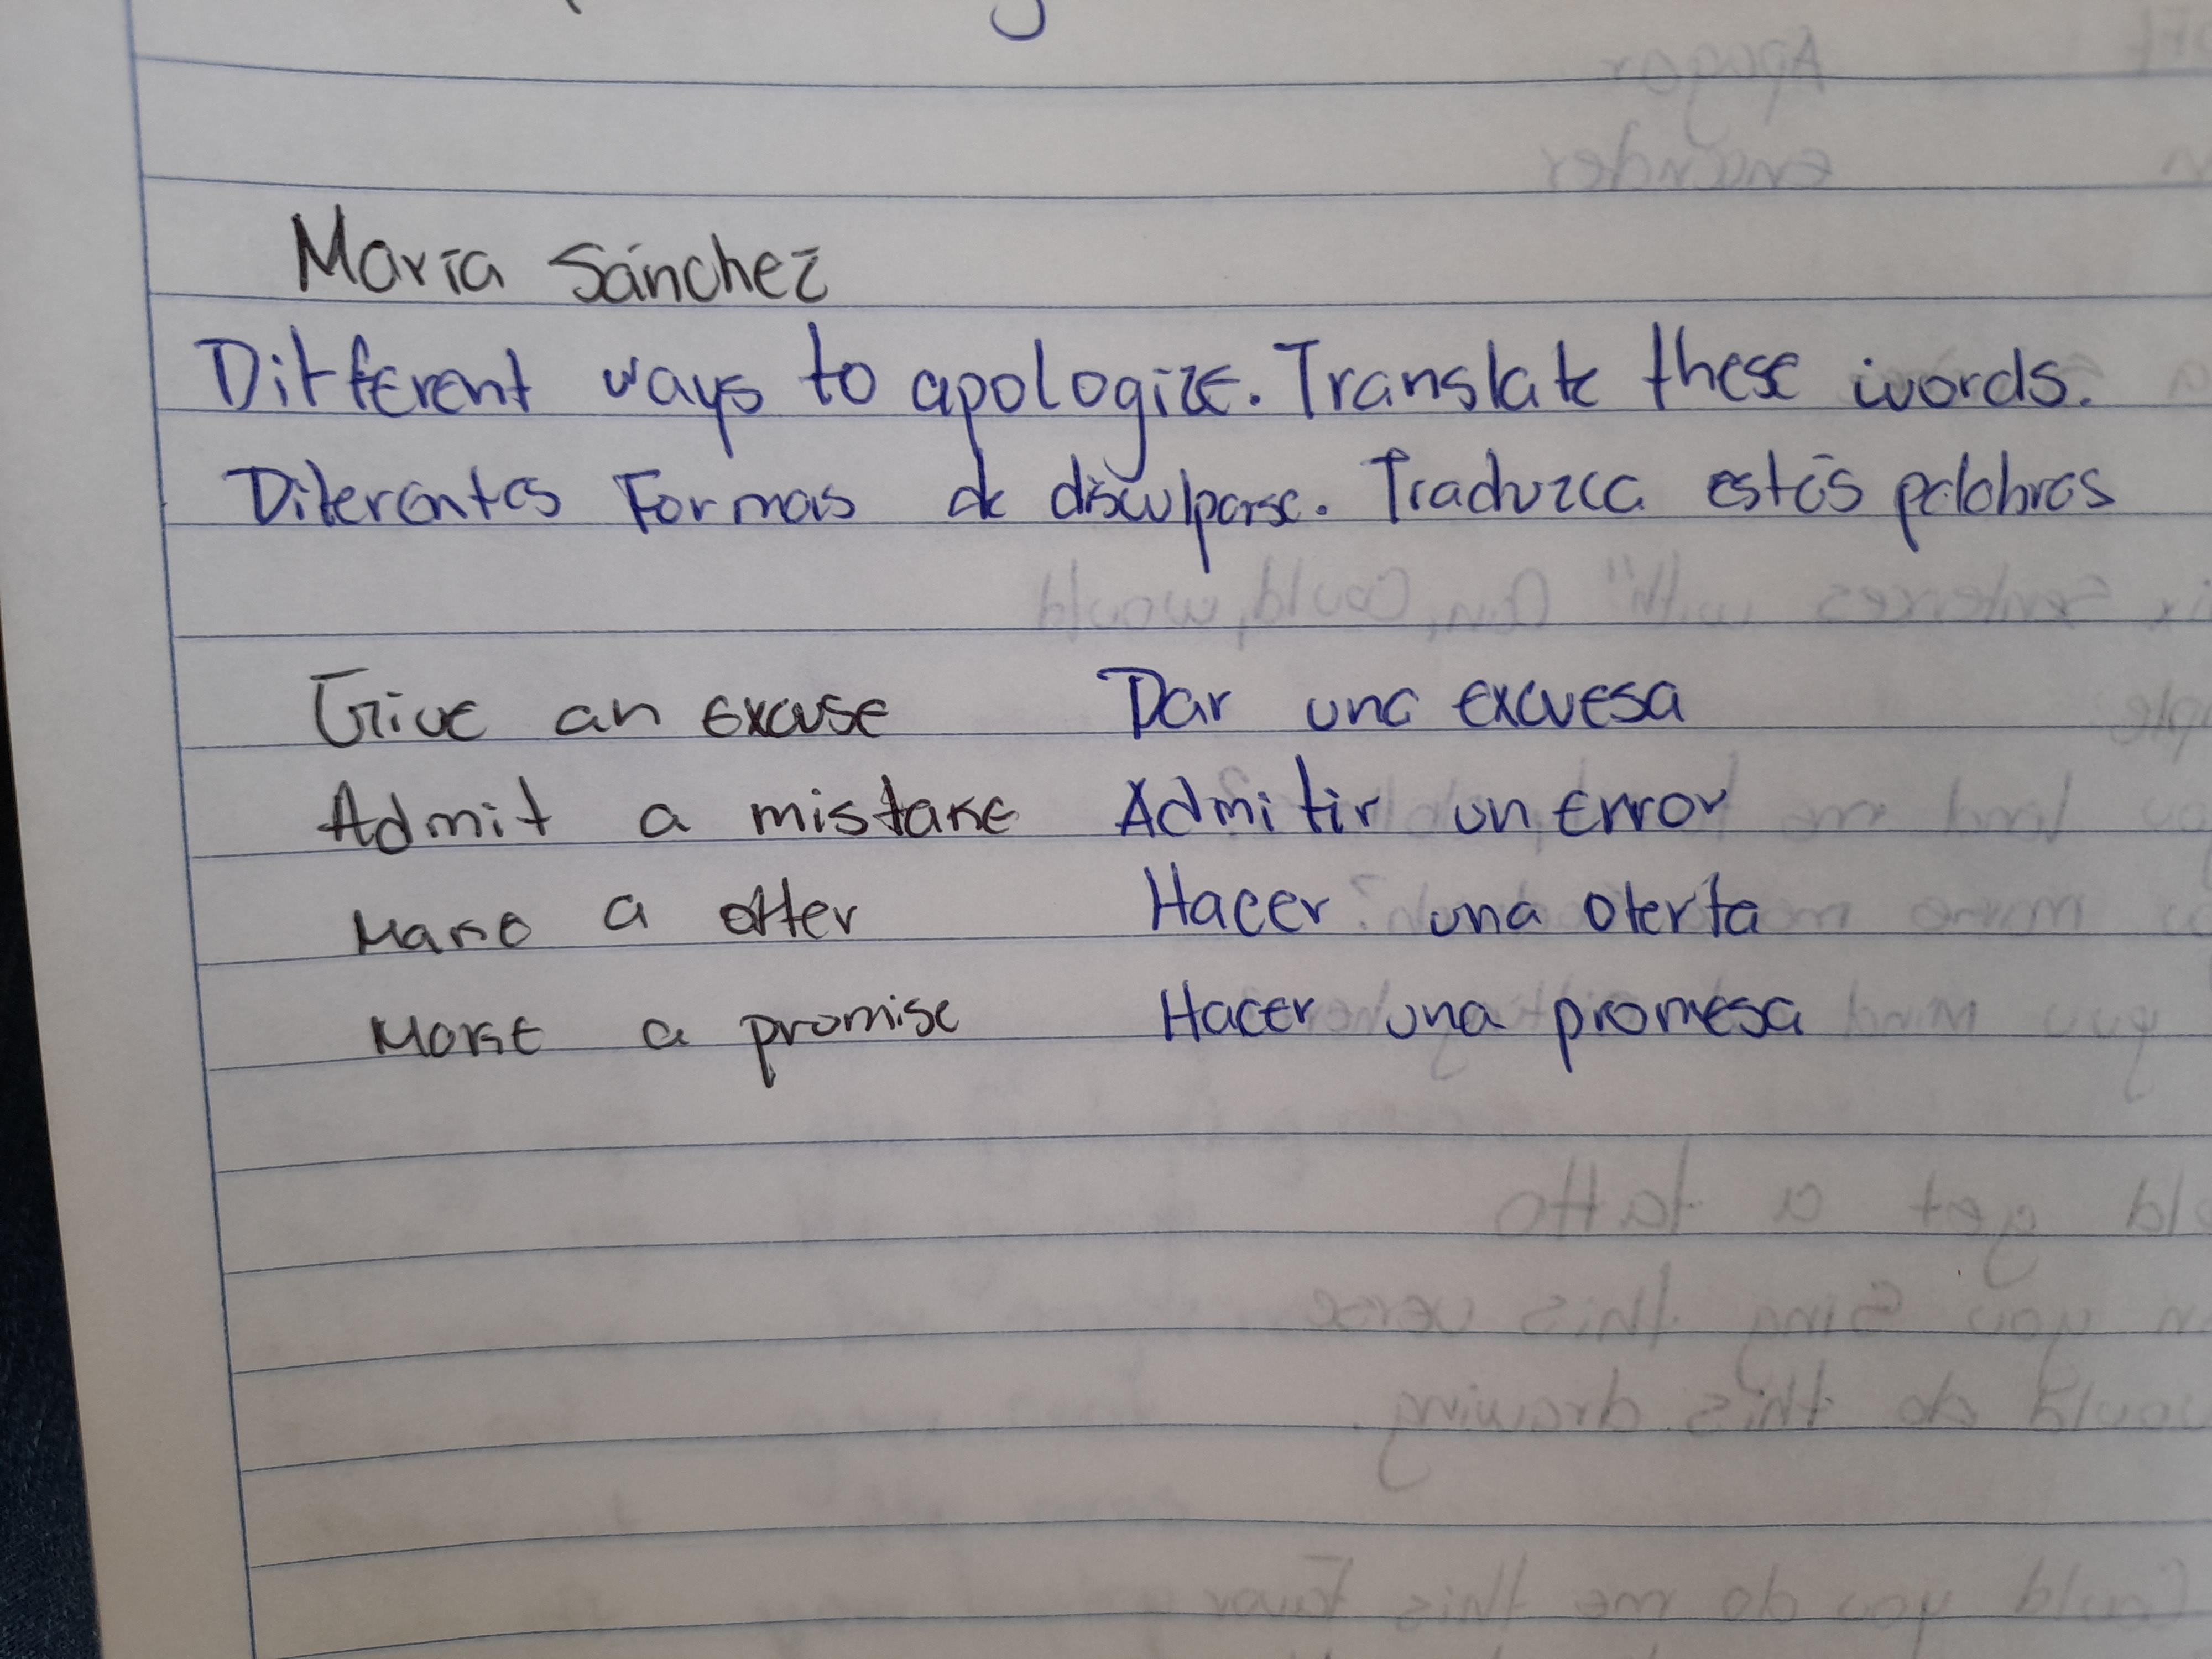 María Sánchez
Different ways to apologize. Translate these words.
Diferentes Formas de disculparse. Traduzca estás palabras
Give an excuse Dar una excuesa
Admit a mistake Admitir un error
Make a offer Hacer una oferta
Make a promise Hacer una promesa